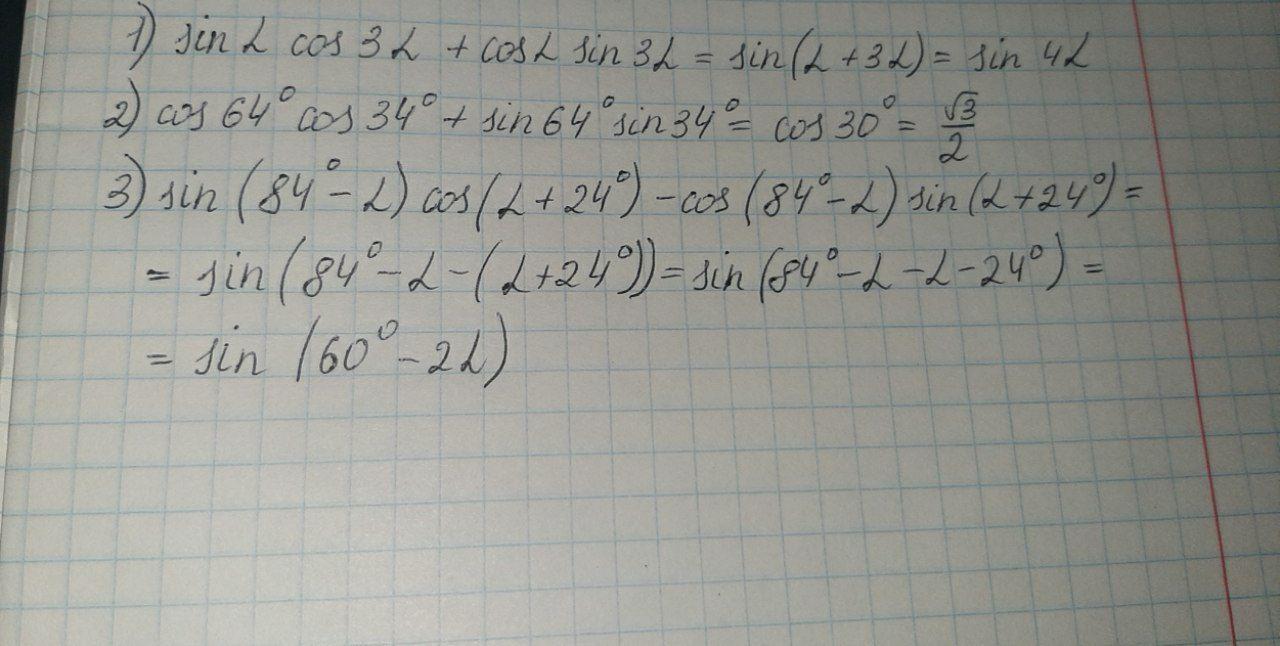 1) sin α cos 3α + cos α sin 3α = sin(α + 3α) = sin 4α
2) cos 64° cos 34° + sin 64° sin 34° = cos 30° = √3/2
3) sin (84° - α) cos(α + 24°) - cos (84° - α) sin (α + 24°) =
= sin (84° - α - (α + 24°)) = sin (84° - α - α - 24°) =
= sin (60° - 2α)